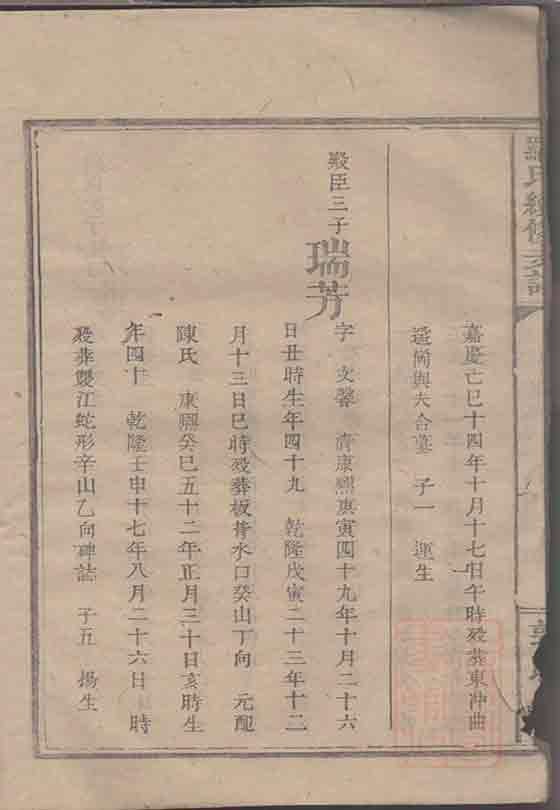 羅氏續修支譜
嘉慶己巳十四年十月十七日午時殁葬東冲曲
與夫合墓 子一 運生
殿臣三子
瑞芳
字 文馨 清康熙庚寅四十九年十月二十六
日丑時生年四十九 乾隆戊寅二十三年十二
月十三日巳時殁葬板背水口癸山丁向 元配
陳氏 康熙癸巳五十二年正月三十日亥時生
年四十 乾隆壬申十七年八月二十六日 時
殁葬雙江蛇形辛山乙向碑誌 子五 揚生